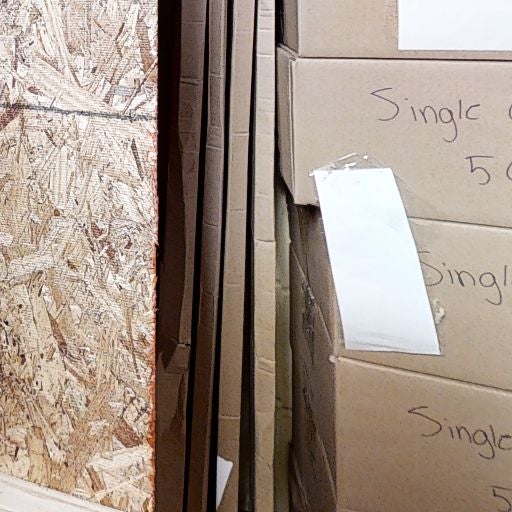 Single
5
Single
Single
5